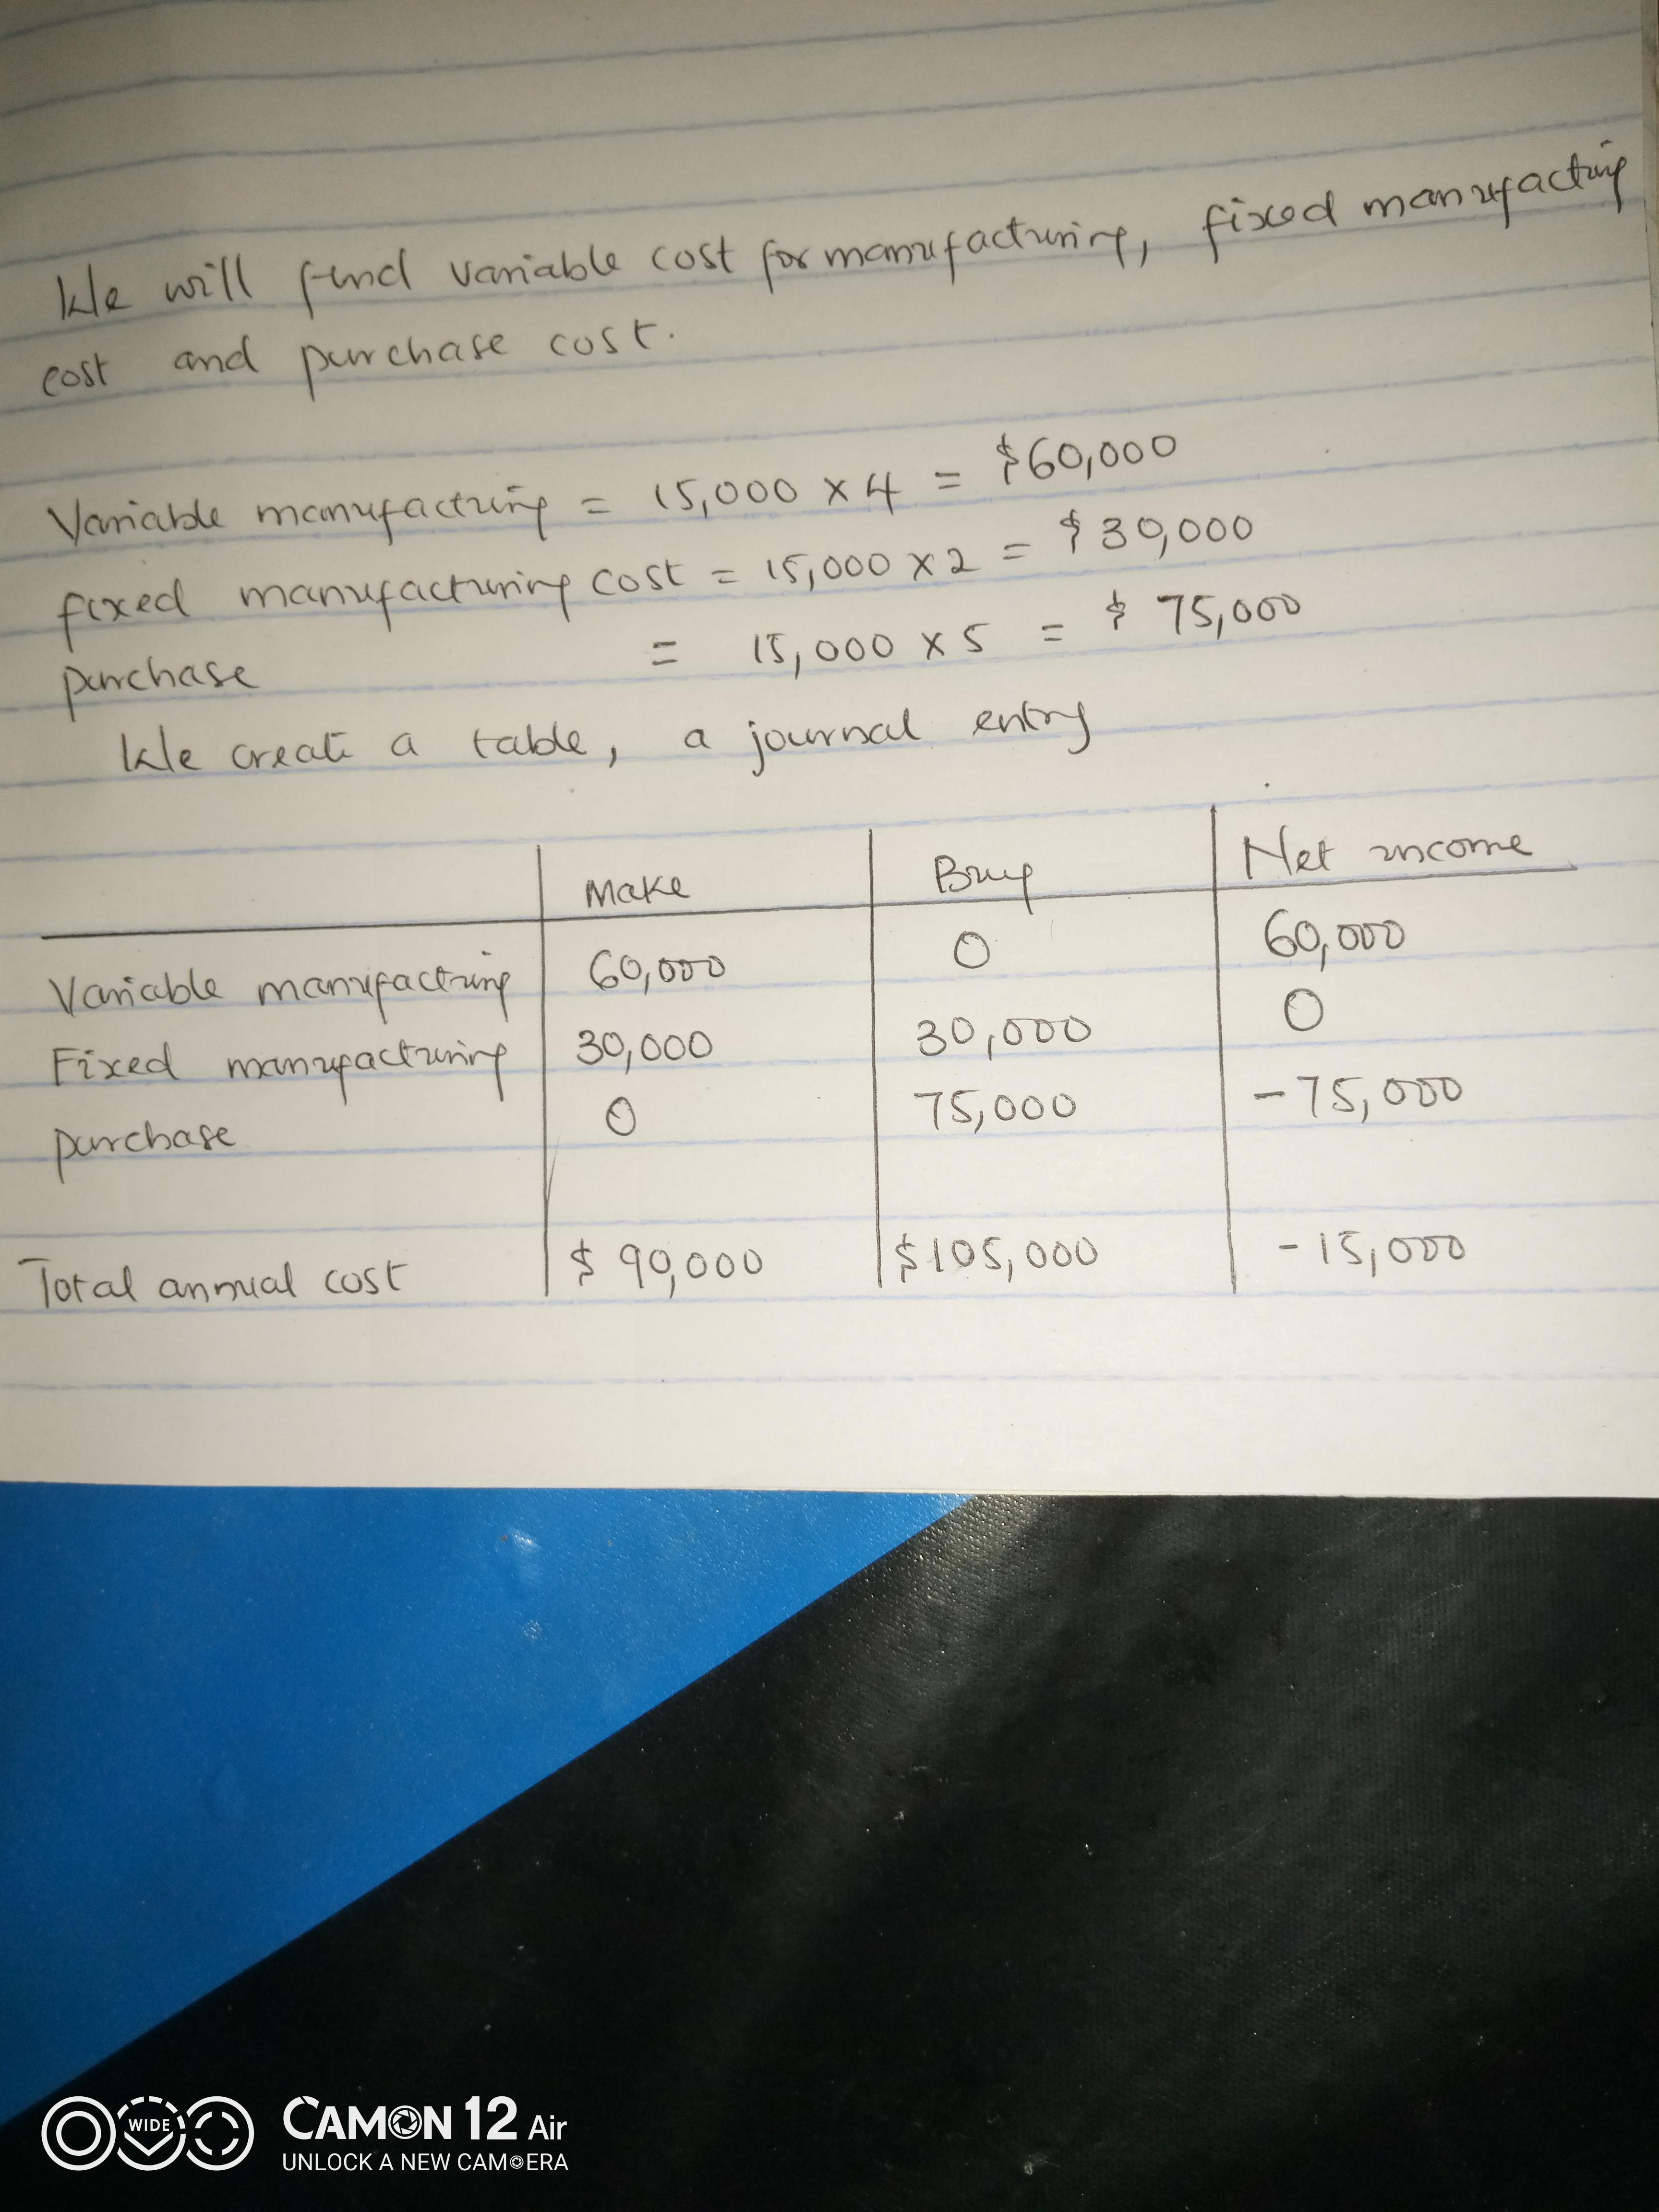 We will find variable cost for manufacturing, fixed manufacturing
cost and purchase cost.
Variable manufacturing = 15,000 x 4 = $60,000
fixed manufacturing cost = 15,000 x 2 = $30,000
purchase = 15,000 x 5 = $75,000
We create a table, a journal entry
Make Buy Net income
Variable manufacturing 60,000 0 60,000
Fixed manufacturing 30,000 30,000 0
purchase 0 75,000 -75,000
Total annual cost $90,000 $105,000 -15,000
WIDE
CAMON 12 Air
UNLOCK A NEW CAMERA